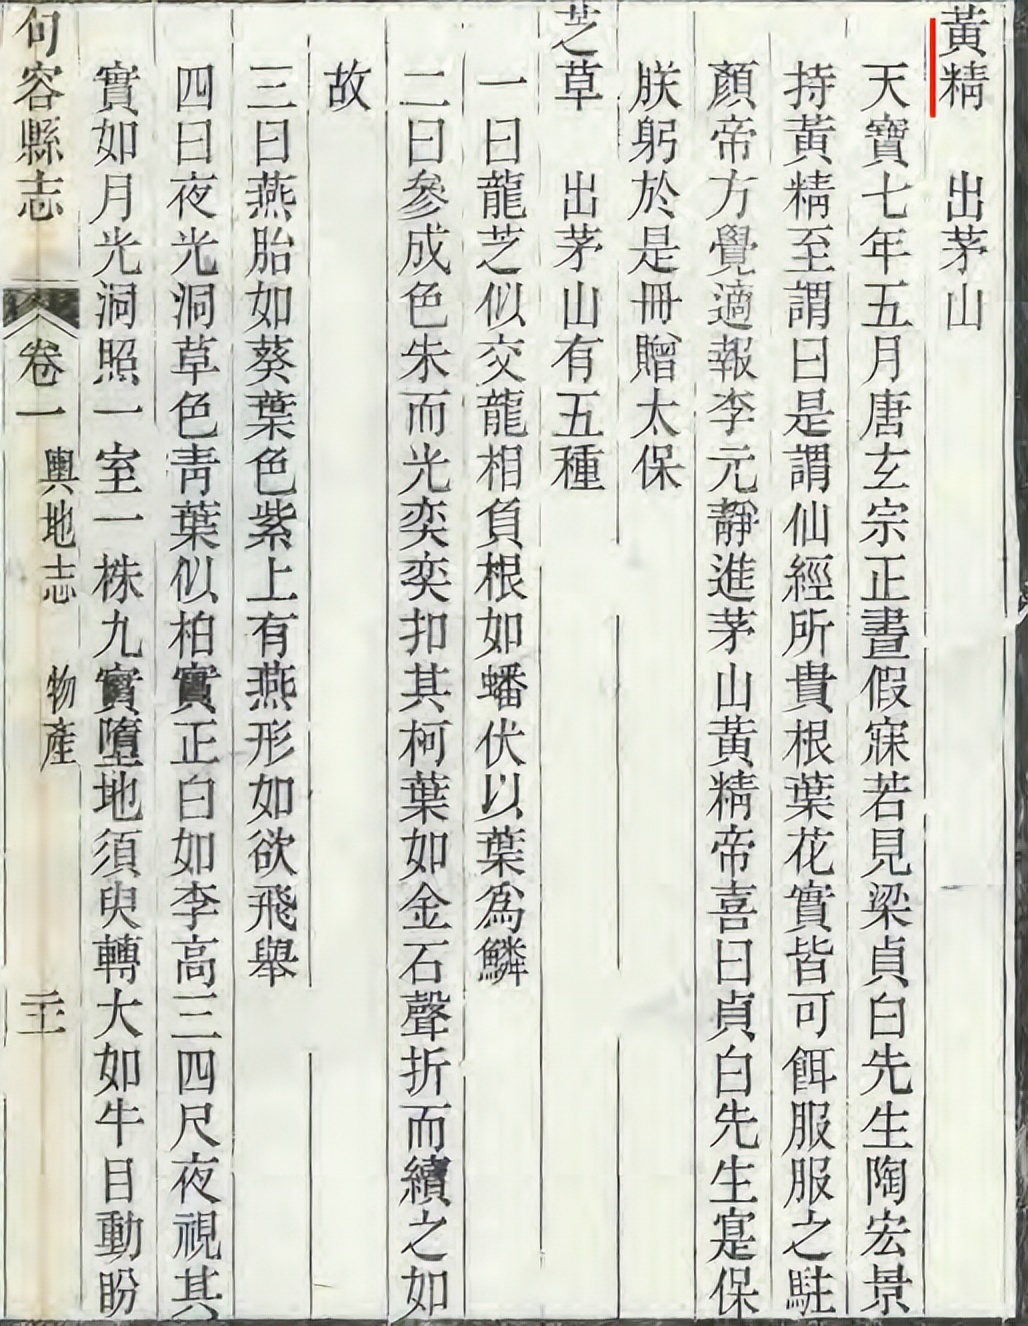 黃精　出茅山
天寶七年五月唐玄宗正晝假寐若見梁貞白先生陶宏景
持黃精至謂曰是謂仙經所貴根葉花實皆可餌服服之駐
顏帝方覺適報李元靜進茅山黃精帝喜曰貞白先生寔保
朕躬於是冊贈太保
芝草　出茅山有五種
一曰龍芝似交龍相負根如蟠伏以葉為鱗
二曰參成色朱而光奕奕扣其柯葉如金石聲折而續之如
故
三曰燕胎如葵葉色紫上有燕形如欲飛舉
四曰夜光洞草色靑葉似柏實正白如李高三四尺夜視其
實如月光洞照一室一株九實墮地須臾轉大如牛目動盼
句容縣志　卷一　輿地志　物產